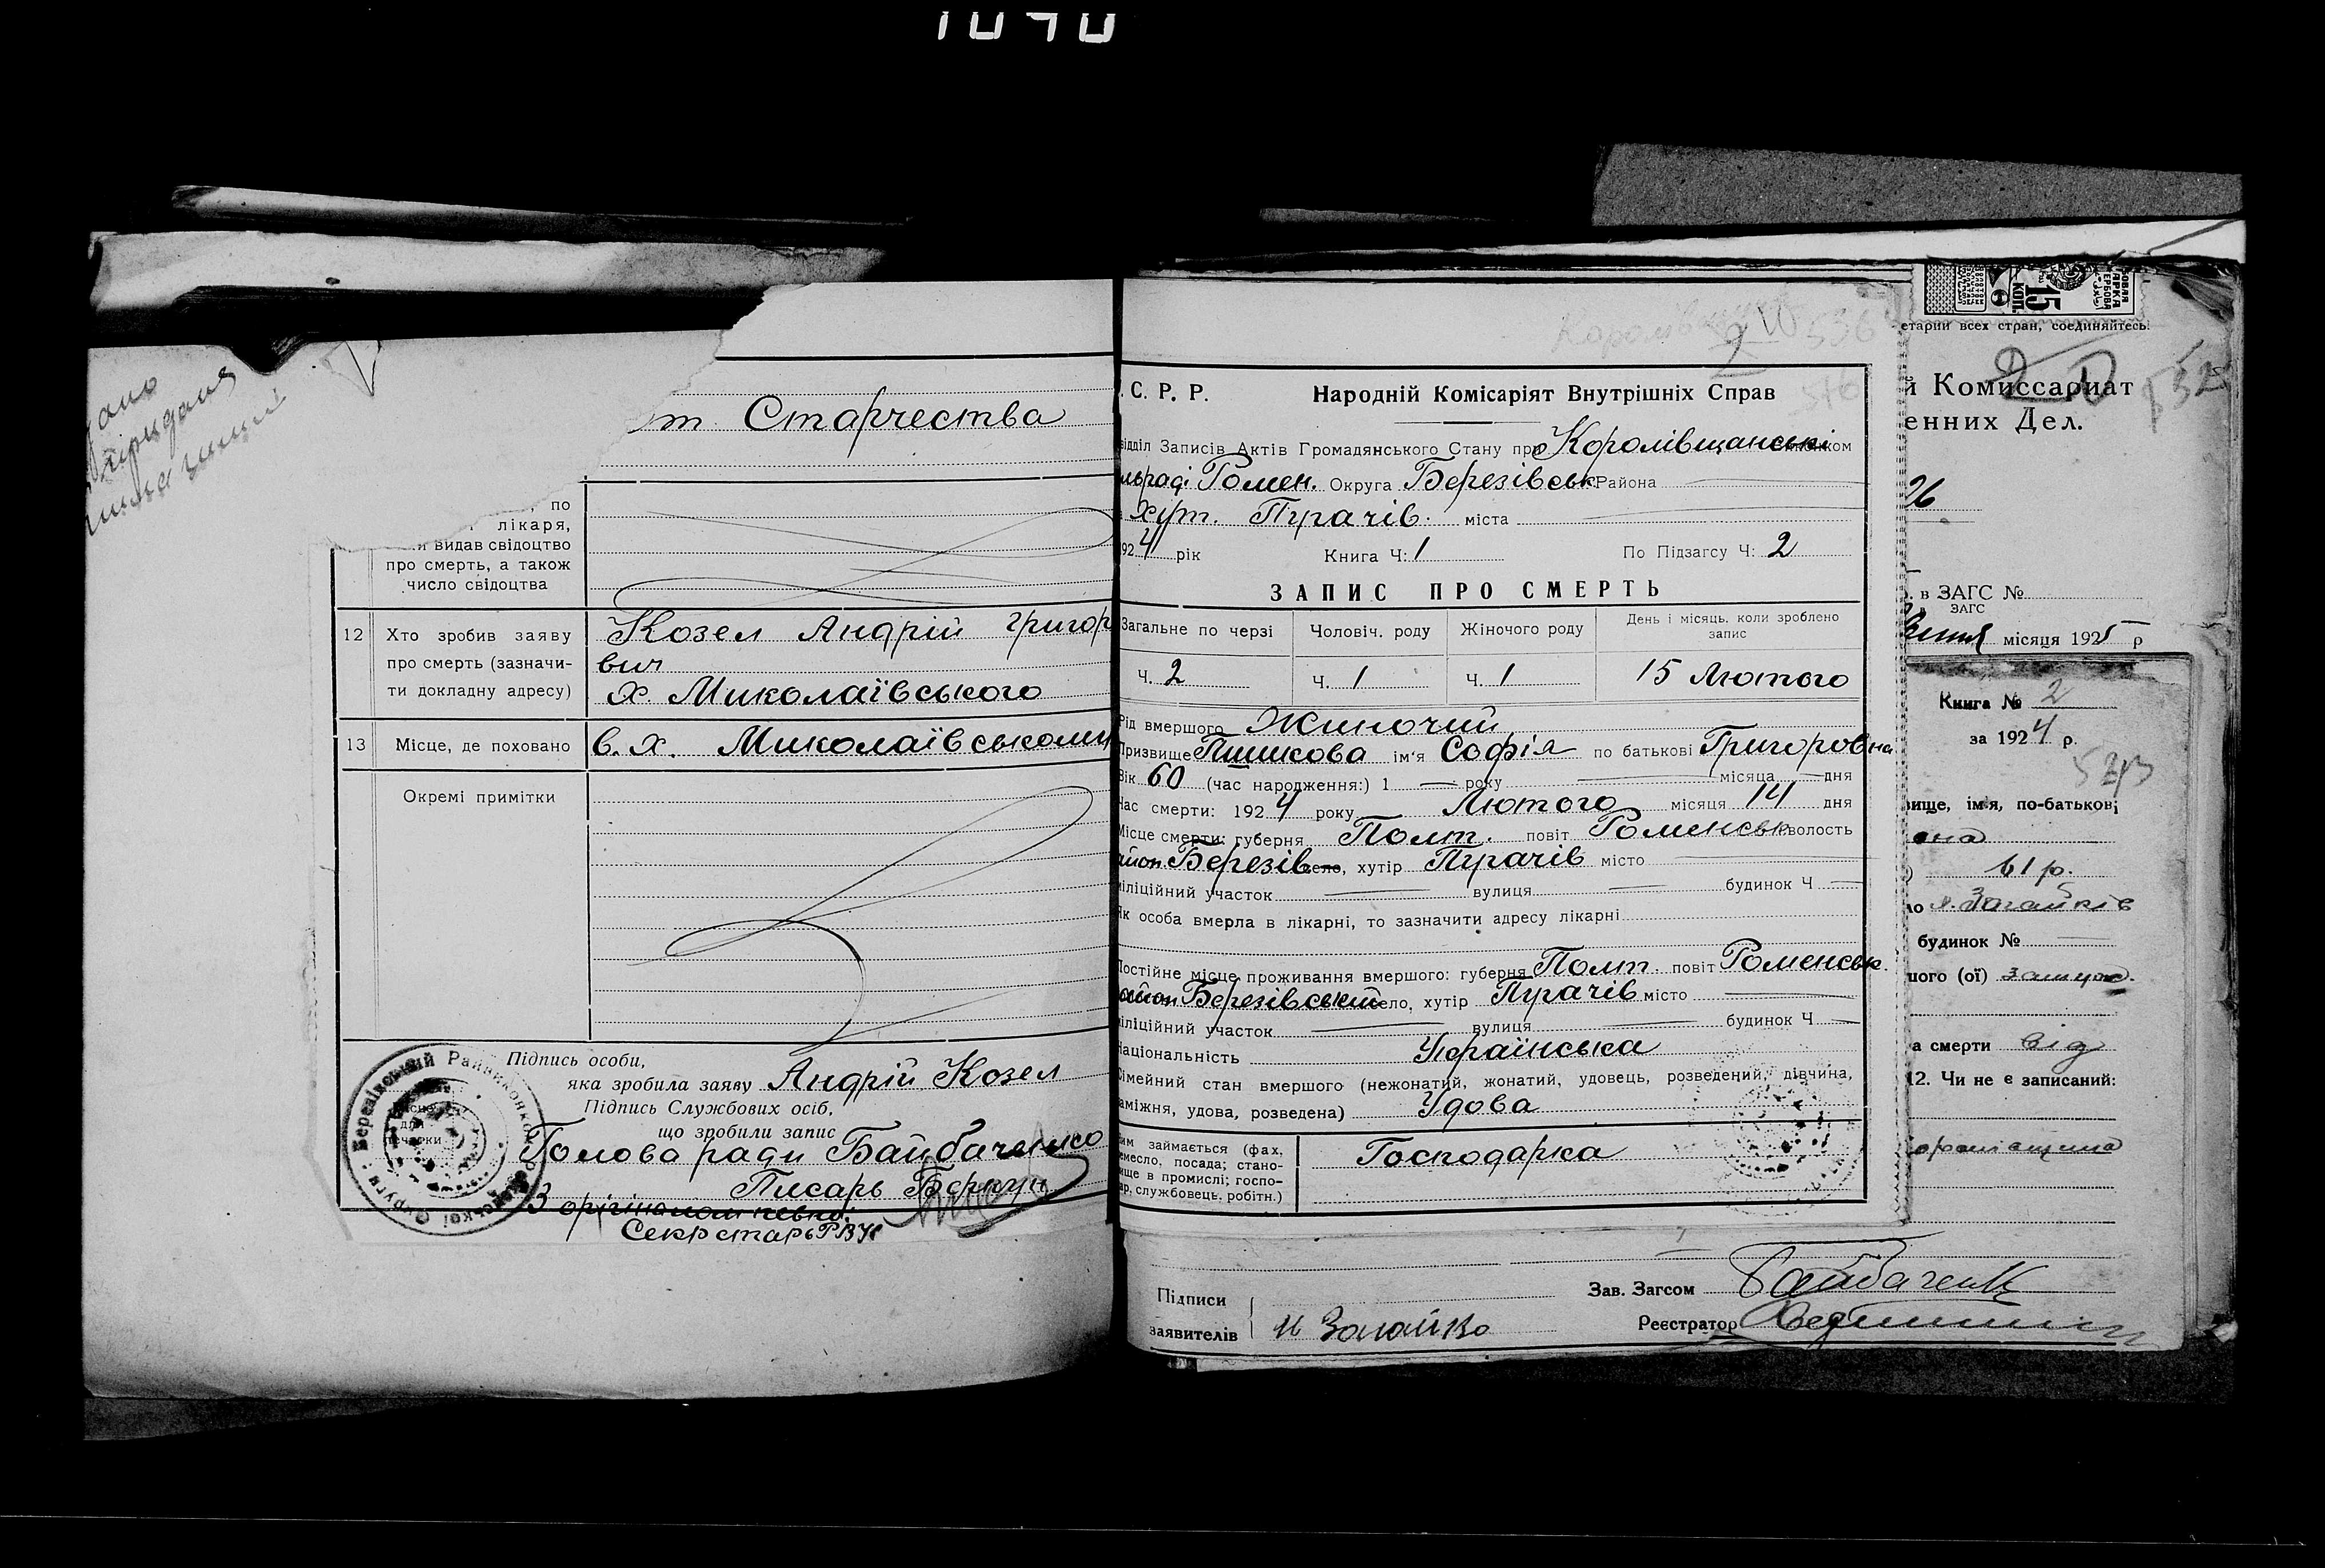 1040
от Старчества
по
лікаря,
видав свідоцтво
про смерть, а також
число свідоцтва
12 Хто зробив заяву про смерть (зазначити докладну адресу)
Козел Андрій Григор
вич
х. Миколаївського
13 Місце, де поховано в. х. Миколаївському
Окремі примітки
Підпись особи,
яка зробила заяву Андрій Козел
Підпись Службових осіб,
що зробили запис
Голова ради Байбаченко
Писарь Беркун
З орігіналом певно:
Секретарь РВК
С. Р. Р. Народній Комісаріят Внутрішніх Справ
відділ Записів Актів Громадянського Стану при Королівщанські
Ромен. Округа Березівськ Района
Хут. Пугачів. міста
1924 рік Книга Ч: 1 По Підзагсу Ч: 2
ЗАПИС ПРО СМЕРТЬ
Загальне по черзі Чоловіч. роду Жіночого роду День і місяць, коли зроблено запис
Ч. 2 Ч. 1 Ч. 1 15 Лютого
Рід вмершого Жиночий
Призвище Пишкова ім'я Софія по батькові Григоровна
Вік 60 (час народження:) 1 року місяца дня
Час смерти: 1924 року Лютого місяця 14 дня
Місце смерти: губерня Полт. повіт Роменськ волость
район Березів село, хутір Пугачів місто
міліційний участок вулиця будинок Ч
Як особа вмерла в лікарні, то зазначити адресу лікарні
Постійне місце проживання вмершого: губерня Полт. повіт Роменськ.
район Березівський село, хутір Пугачів місто
міліційний участок вулиця будинок Ч
Національність Українська
Сімейний стан вмершого (нежонатий, жонатий, удовець, розведений, дівчина,
заміжня, удова, розведена) Удова
Чим займається (фах, ремесло, посада; становище в промислі; господар, службовець, робітн.) Господарка
Підписи
заявителів
Зав. Загсом Байбаченко
Реєстратор
етарии всех стран, соединяйтесь!
й Комиссариат
енних Дел.
26
в ЗАГС №
ЗАГС
місяця 1925 р
Книга № 2
за 1924 р.
543
вище, ім'я, по-батькові
61 р.
будинок №
шого (ої)
а смерти від
12. Чи не є записаний:
15 коп